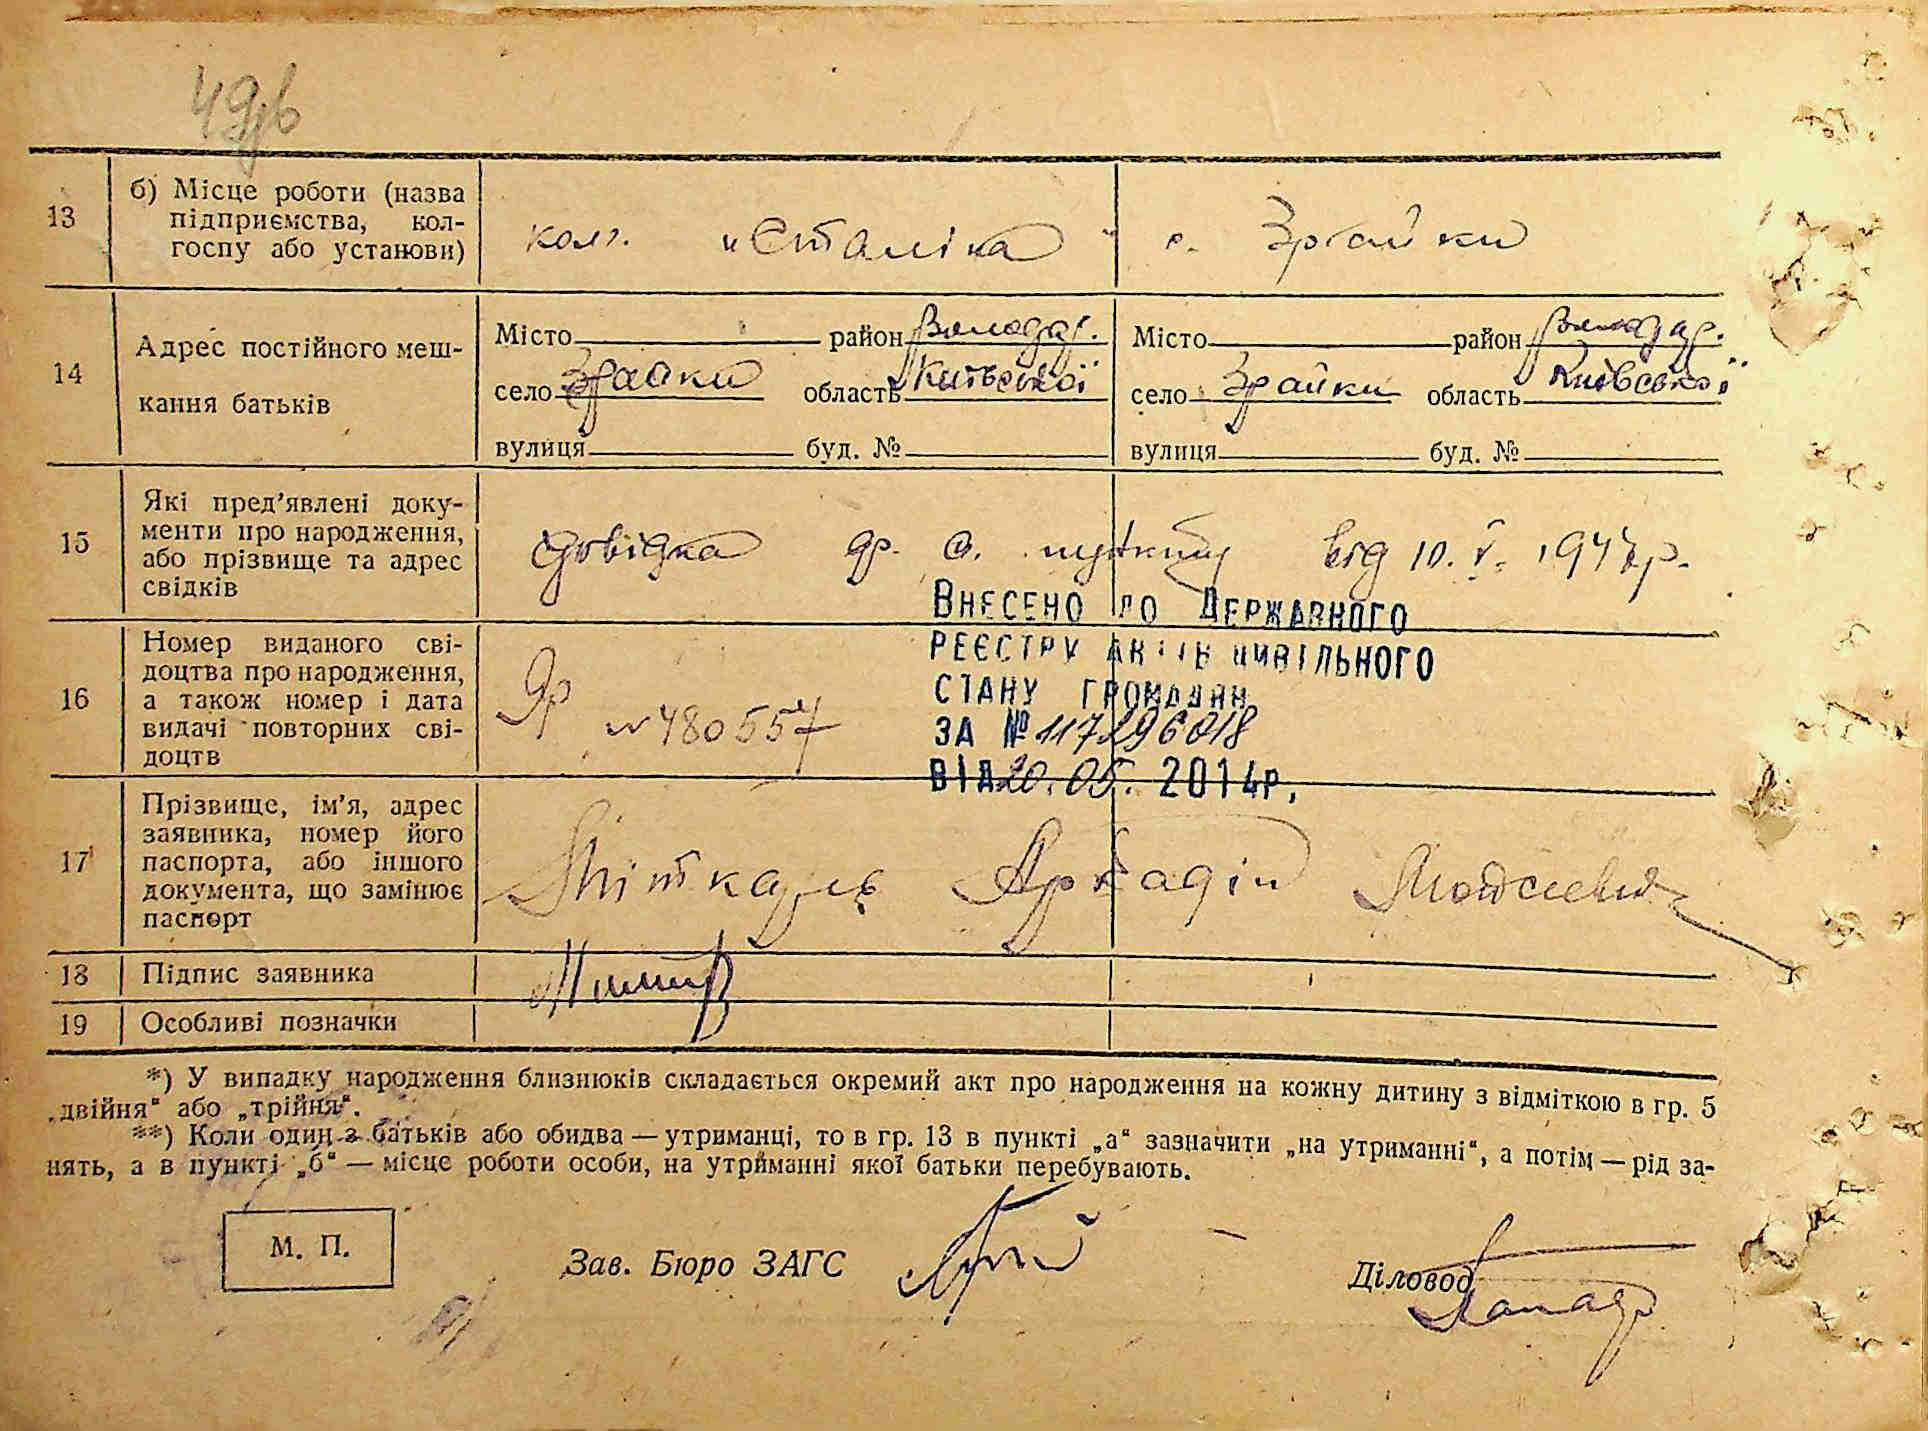 13
б) Місце роботи (назва
підприємства, кол-
госпу або установи)
колг. „Сталіна“ с. Зрайки
14
Адрес постійного меш-
кання батьків
Місто район Володар. Місто район Володар.
село Зрайки область Київської село Зрайки область Київської
вулиця буд. № вулиця буд. №
15
Які пред'явлені доку-
менти про народження,
або прізвище та адрес
свідків
довідка пункту від 10. V. 1947р.
ВНЕСЕНО ДО ДЕРЖАВНОГО
РЕЄСТРУ АКТІВ ЦИВІЛЬНОГО
СТАНУ ГРОМАДЯН
ЗА № 117296018
ВІД 20.05. 2014р.
16
Номер виданого сві-
доцтва про народження,
а також номер і дата
видачі повторних сві-
доцтв
№ 480557
17
Прізвище, ім'я, адрес
заявника, номер його
паспорта, або іншого
документа, що замінює
паспорт
Аркадій
18 Підпис заявника
19 Особливі позначки
*) У випадку народження близнюків складається окремий акт про народження на кожну дитину з відміткою в гр. 5
„двійня“ або „трійня“.
**) Коли один з батьків або обидва — утриманці, то в гр. 13 в пункті „а“ зазначити „на утриманні“, а потім — рід за-
нять, а в пункті „б“ — місце роботи особи, на утриманні якої батьки перебувають.
М. П.
Зав. Бюро ЗАГС
Діловод